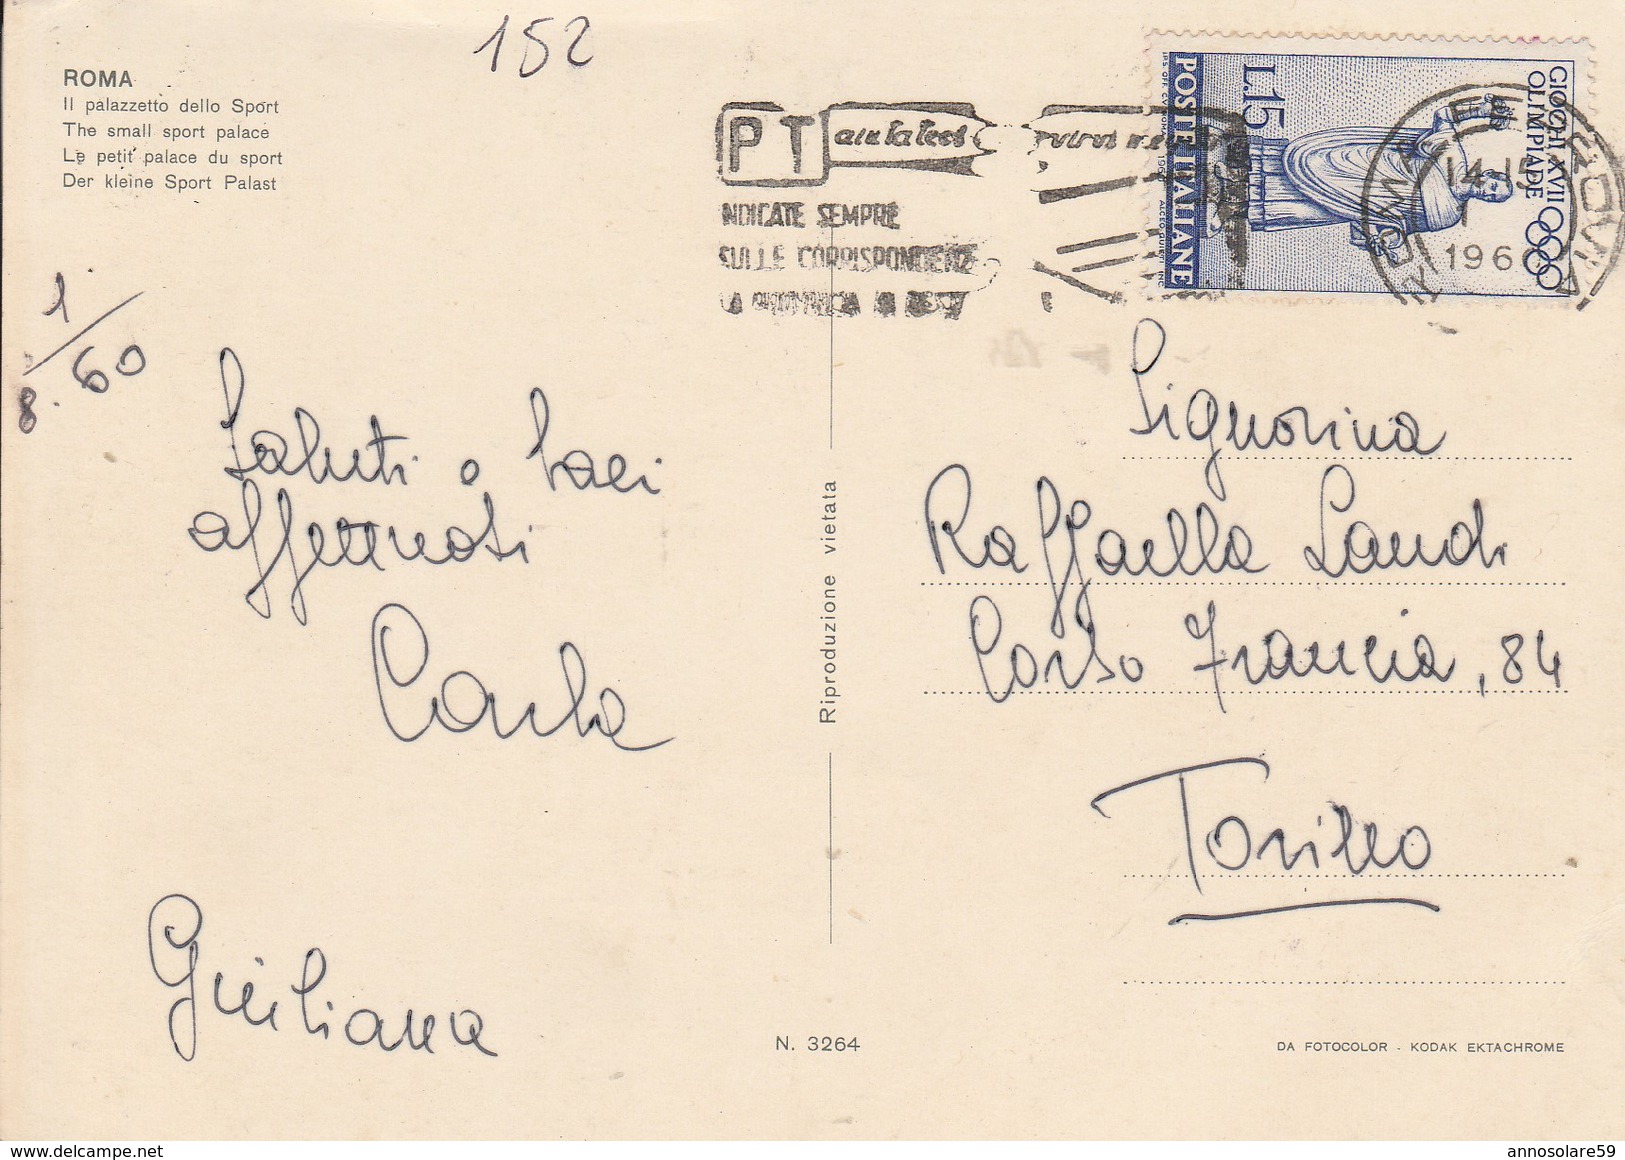 152
ROMA
Il palazzetto dello Sport
The small sport palace
Le petit palace du sport
Der kleine Sport Palast
1/8.60
Saluti e baci
affettuosi
Carla
Giuliana
Riproduzione vietata
N. 3264
PT aiutateci
INDICATE SEMPRE
SULLE CORRISPONDENZE
GIOCHI XVII
OLIMPIADE
L.15
POSTE ITALIANE
ROMA FERROVIA
14.15
1
196
Signorina
Raffaella Landi
Corso Francia, 84
Torino
DA FOTOCOLOR - KODAK EKTACHROME
delcampe.net
annosolare59